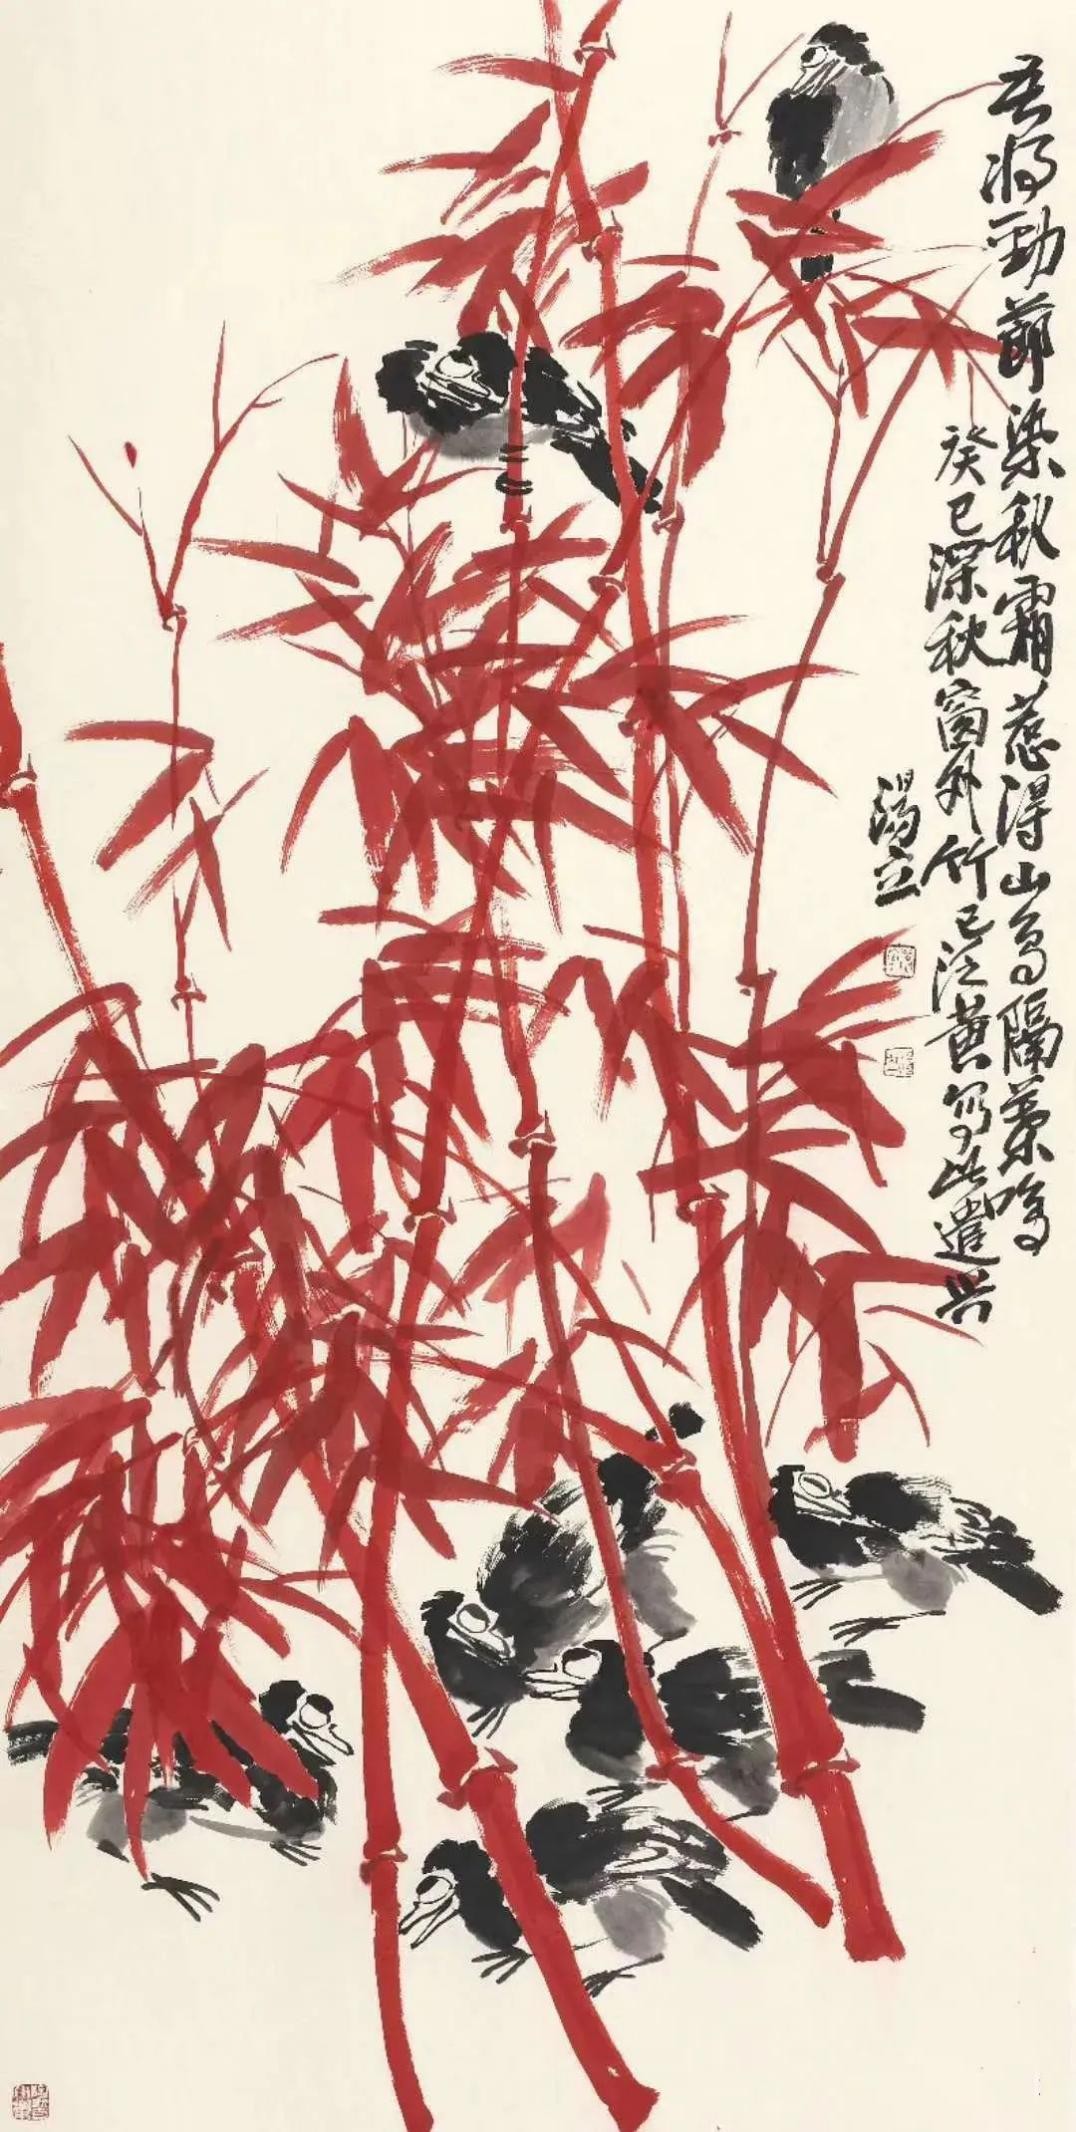 吾将劲节染秋霜惹得山鸟隔叶鸣
癸巳深秋窗外竹已泛黄写此遣兴
汤立